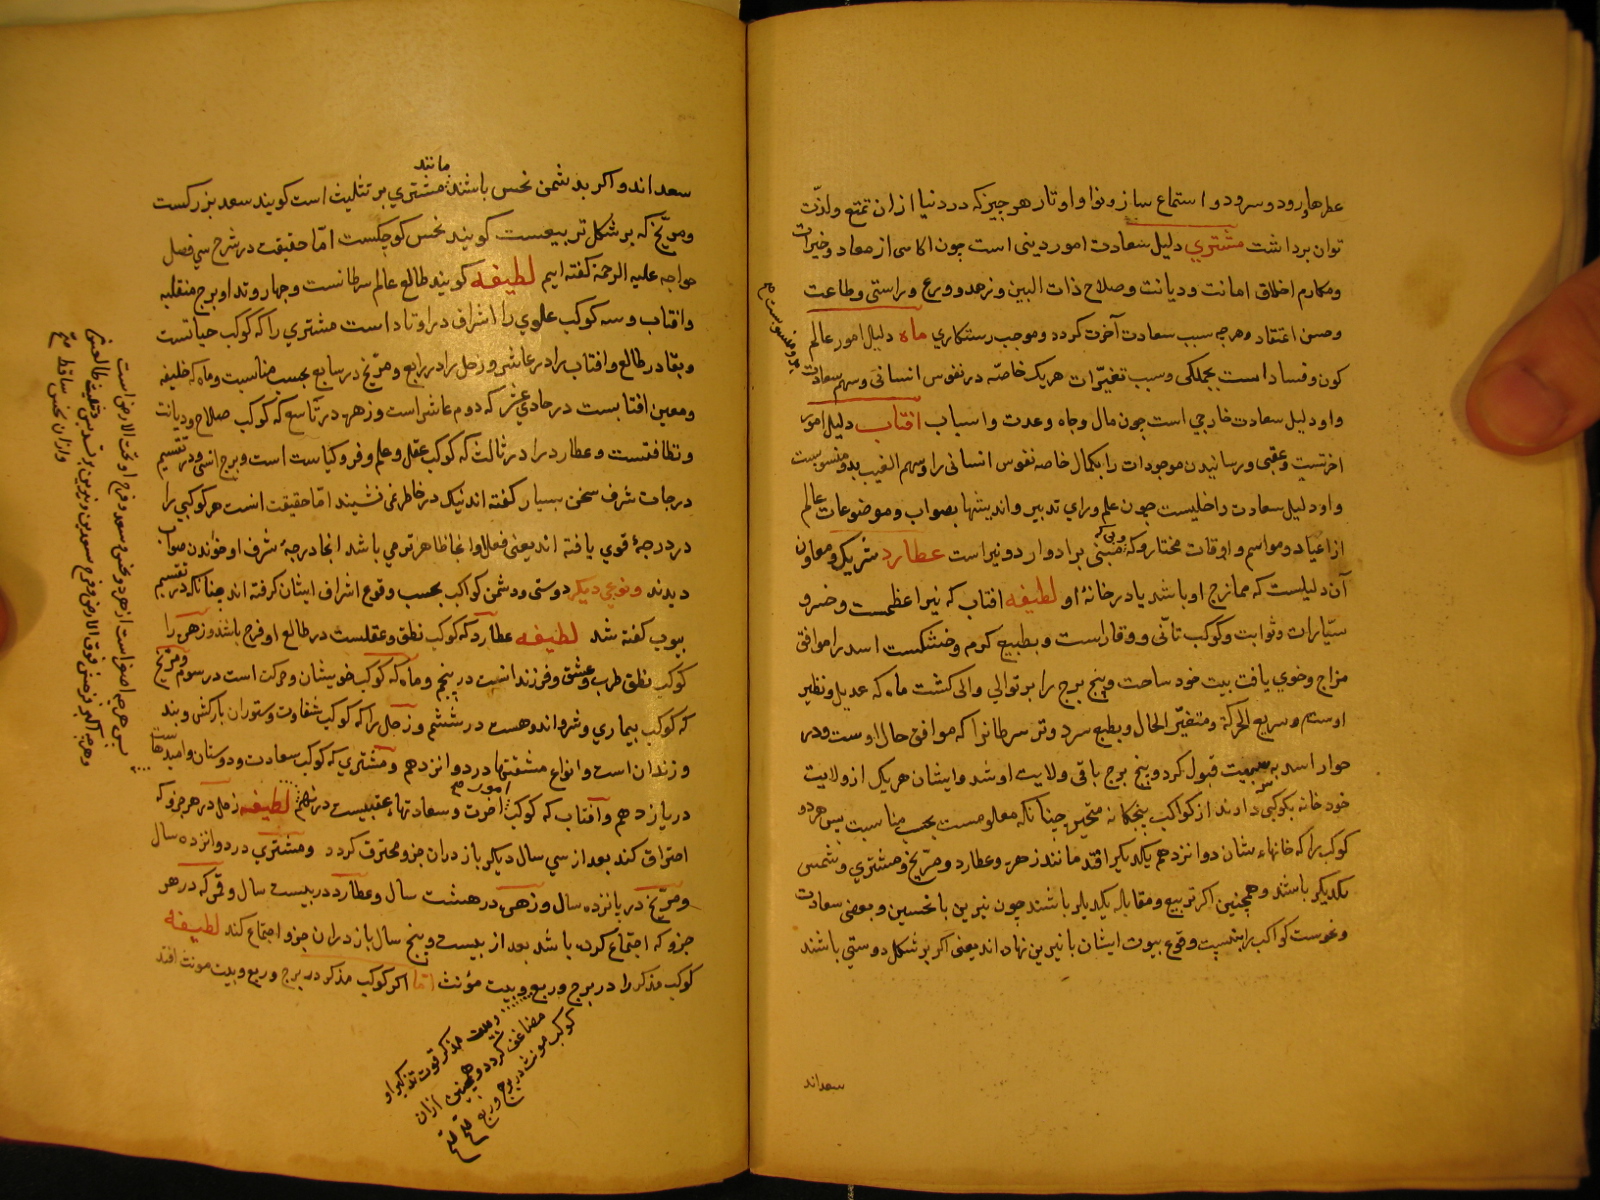 علمهاء رود و سرود و استماع ساز و نوا و اوتار هرچیز که در دنیا ازان تمتع ولذّت
توان برداشت مشتري دلیل سعادت امور دینی است چون اکاسی از معاد و خیرات
ومکارم اخلاق امانت ودیانت وصلاح ذات البین وزهد وورع وراستی وطاعت
وحسن اعتقاد وهرچه سبب سعادت آخرت کردد وموجب رستکاري ماه دلیل امور عالم
کون وفساد است بجملکی وسبب تغیّرات هریک خاصّه در نفوس انسانی وسهم سعادت
واو دلیل سعادت خارجي است چون مال وجاه وعدت واسباب افتاب دلیل امور
اخرتست وعقبی ورسانیدن موجودات را بکمال خاصه نفوس انسانی را وسهم الغیب بدو منسوبست
واو دلیل سعادت داخلیست چون علم وراي تدبیر واندیشها بصواب وموضوعات عالم
از اعیاد ومواسم واوقات مختاره وکه مبنی بر ادوار دو نیر است عطارد شریک ومعاون
آن دلیلست که ممازج او باشد یا در خانهٔ او لطیفه افتاب که نیر اعظمست وخسرو
سیّارات وثوابت وکوکب تأنّی ووقارست وبطبیع کرم وخشکست اسد را موافق
مزاج وخوي یافت بیت خود ساخت وپنج برج را بر توالي والی کشت ماه که عدیل ونظیر
اوست وسریع الحرکة ومتغیّر الحال وبطبع سرد وتر سرطانرا که موافق حال اوست ودر
جوار اسد به بیت قبول کرد وپنج برج باقی ولایت او شد وایشان هریک از ولایت
خود خانه بکوکبی دادند از کواکب پنجکانه متحیر چنانکه معلومست بحسب مناسبت پس هر دو
کوکب را که خانهاء شان دوازدهم یکدیکر افتد مانند زهره وعطارد ومریخ ومشتري وشمس
یکدیکر باشند وهمچنین اکر تربیع ومقابله یکدیکر باشند چون نیرین با نحسین وبعضی سعادت
ونحوست کواکب را بنسبت وقوع بیوت ایشان با نیرین نهاده اند یعنی اکر بر شکل دوستي باشند
سعداند
سعداند واکر بدشمن نحس باشند مشتري بر تثلیث است کویند سعد بزرکست
مانند
ومریّخ که بر شکل تربیعست کویند نحس کوچکست امّا حقیقت در شرح سي فصل
خواجه علیه الرحمة کفته ایم لطیفه کویند طالع عالم سرطانست وچهار وتد او برج منقلبه
وافتاب وسه کوکب علوي را اشراف در اوتاد است مشتري را که کوکب حیاتست
وبقا در طالع وافتاب را در عاشر وزحل را در رابع ومرّیخ در سابع بحسب مناسبت وماه که خلیفه
ومعین افتابست در حادي عشر که دوم عاشر است وزهره در تاسع که کوکب صلاح ودیانت
ونظافتست وعطارد را در ثالث که کوکب عقل وعلم وفر وکیاست است وبرج انسی ودر تقسیم
درجات شرف سخن بسیار کفته اند لیک در خاطر نمی نشیند امّا حقیقت انست هر کوکبي را
در درجهٔ قوي یافته اند یعنی فعل او انجا ظاهر تر می باشد انجا درجهٔ شرف او خواندن صواب
دیدند ونوعي دیکر دوستی ودشمن کواکب بحسب وقوع اشراف ایشان کرفته اند چنانکه در تقسیم
بیوت کفته شد لطیفه عطارد که کوکب نطق وعقلست در طالع او فرح باشد وزهره را
کوکب نطق طرب وعشق وفرزند انست در پنجم وماه که کوکب خویشان وحرکت است در سوم ومریخ
که کوکب بیماري وشر واندوهست در ششم وزحل را که کوکب شقاوت وستوران بارکش وبند
وزندان است وانواع مشقتها در دوانزدهم ومشتري که کوکب سعادت ودوستان وامیدهاست
در یازدهم وآفتاب که کوکب اخرت وسعادتهاء عقبیست در نهم لطیفه زحل در هر جزو که
امور
احتراق کند بعد از سي سال دیکر باز دران جزو محترق کردد ومشتري در دوانزده سال
ومریّخ در پانزده سال وزهره در هشت سال وعطارد در بیست سال وقمر که در هر
جزو که اجتماع کرده باشد بعد از بیست وپنج سال باز دران جزو اجتماع کند لطیفه
کوکب مذکر را در برج وربع وبیت مؤنث امّا اکر کوکب مذکر در برج وربع وبیت مونث افتد
وبیت مذکر قوت تذکیر او
مضاعف کردد وهمچنین ازان
کوکب مونث در برج وربع
پس هرچه اصفر است از هر دو نحس وسعد وفرح او تحت الارض است
وهرچه اکبر از نحس فوق الارض وفرح سعدین ونیرین بر تسدیس وتثلیث طالع
وازان نحس ساقط